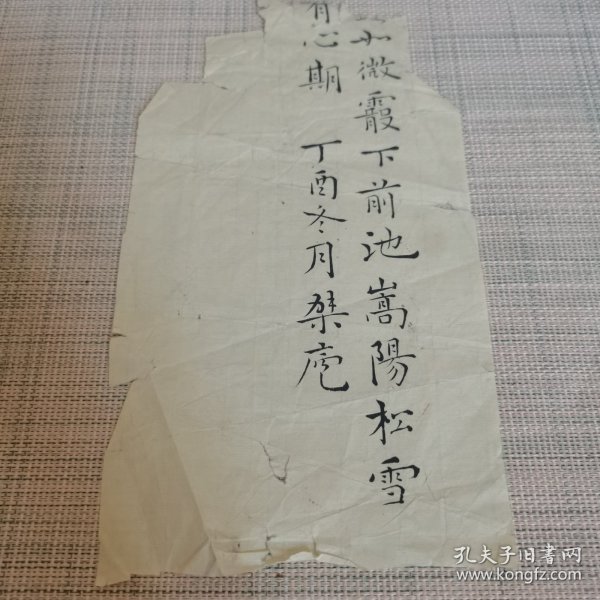 微霰下前池嵩陽松雪
有心期 丁酉冬月
孔夫子旧書网
www.kongfz.com